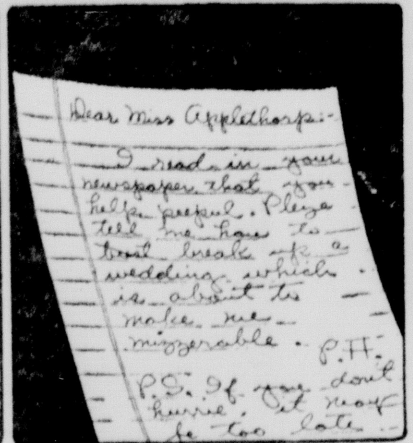 Dear Miss Applethorp:-
I read in your
newspaper that you
help peepul. Pleze
tell me how to
best break up a
wedding which
is about to
make me
mizzerable.
P.H.
P.S. If you dont
hurrie, it may
be too late